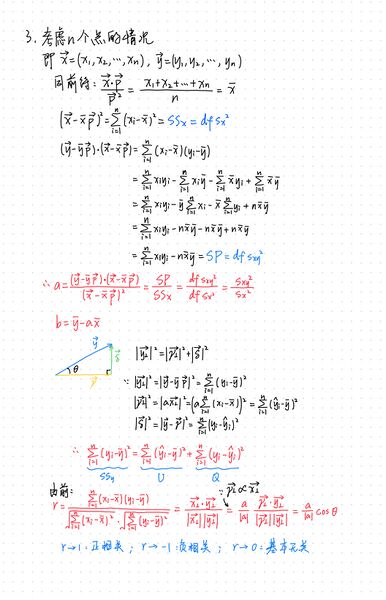 3. 考虑n个点的情况
即 x⃗=(x₁, x₂, ⋯, xₙ), y⃗=(y₁, y₂, ⋯, yₙ)
同前得: x⃗·p⃗/p⃗² = (x₁+x₂+⋯+xₙ)/n = x̄
(x⃗-x̄p⃗)² = Σᵢ₌₁ⁿ(xᵢ-x̄)² = SSx = df sx²
(y⃗-ȳp⃗)·(x⃗-x̄p⃗) = Σᵢ₌₁ⁿ(xᵢ-x̄)(yᵢ-ȳ)
= Σᵢ₌₁ⁿxᵢyᵢ - Σᵢ₌₁ⁿxᵢȳ - Σᵢ₌₁ⁿx̄yᵢ + Σᵢ₌₁ⁿx̄ȳ
= Σᵢ₌₁ⁿxᵢyᵢ - ȳΣᵢ₌₁ⁿxᵢ - x̄Σᵢ₌₁ⁿyᵢ + nx̄ȳ
= Σᵢ₌₁ⁿxᵢyᵢ - nx̄ȳ - nx̄ȳ + nx̄ȳ
= Σᵢ₌₁ⁿxᵢyᵢ - nx̄ȳ = SP = df sxy²
∴ a = (y⃗-ȳp⃗)·(x⃗-x̄p⃗)/(x⃗-x̄p⃗)² = SP/SSx = df sxy²/df sx² = sxy²/sx²
b = ȳ-ax̄
y⃗ δ⃗ θ p⃗
|y⃗₂|² = |p⃗₂|²+|δ⃗|²
∵ |y⃗₂|² = |y⃗-ȳp⃗|² = Σᵢ₌₁ⁿ(yᵢ-ȳ)²
|p⃗₂|² = |ax⃗₂|² = (aΣᵢ₌₁ⁿ(xᵢ-x̄))² = Σᵢ₌₁ⁿ(ŷᵢ-ȳ)²
|δ⃗|² = |y⃗-p⃗|² = Σᵢ₌₁ⁿ(yᵢ-ŷᵢ)²
∴ Σᵢ₌₁ⁿ(yᵢ-ȳ)² = Σᵢ₌₁ⁿ(ŷᵢ-ȳ)² + Σᵢ₌₁ⁿ(yᵢ-ŷᵢ)²
SSy U Q
由前: ∵ p⃗₂∝x⃗₂
r = Σᵢ₌₁ⁿ(xᵢ-x̄)(yᵢ-ȳ)/(√Σᵢ₌₁ⁿ(xᵢ-x̄)²·√Σᵢ₌₁ⁿ(yᵢ-ȳ)²) = x⃗₂·y⃗₂/|x⃗₂||y⃗₂| = a/|a| p⃗₂·y⃗₂/|p⃗₂||y⃗₂| = a/|a| cosθ
r→1: 正相关; r→-1: 负相关; r→0: 基本无关